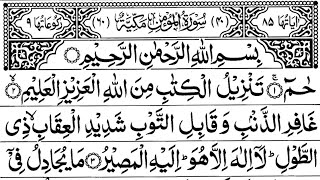 اٰیَاتُهَا ٨٥ (٤٠) سُوْرَةُ الْمُؤْمِنِ مَكِّیَّةٌ (٦٠) رُكُوْعَاتُهَا ٩
بِسْمِ اللّٰهِ الرَّحْمٰنِ الرَّحِیْمِ
حٰمٓ ۝١ تَنْزِیْلُ الْكِتٰبِ مِنَ اللّٰهِ الْعَزِیْزِ الْعَلِیْمِ ۝٢
غَافِرِ الذَّنْۢبِ وَ قَابِلِ التَّوْبِ شَدِیْدِ الْعِقَابِ ذِی
الطَّوْلِ ؕ لَاۤ اِلٰهَ اِلَّا هُوَ ؕ اِلَیْهِ الْمَصِیْرُ ۝٣ مَا یُجَادِلُ فِیْۤ